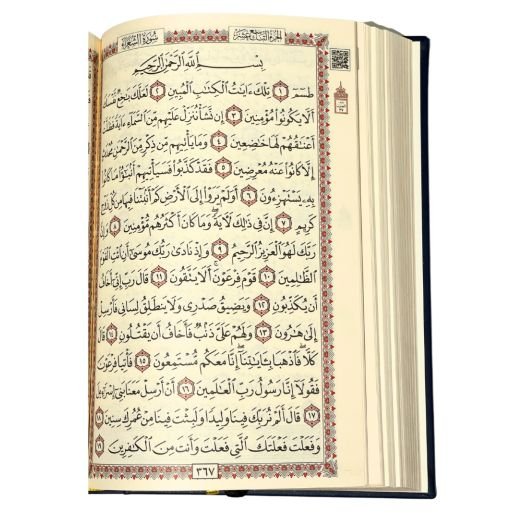 الجزء التاسع عشر سورة الشعراء
بِسْمِ اللَّهِ الرَّحْمَٰنِ الرَّحِيمِ
طسٓمٓ ١ تِلْكَ ءَايَٰتُ ٱلْكِتَٰبِ ٱلْمُبِينِ ٢ لَعَلَّكَ بَٰخِعٌ نَّفْسَكَ
أَلَّا يَكُونُوا۟ مُؤْمِنِينَ ٣ إِن نَّشَأْ نُنَزِّلْ عَلَيْهِم مِّنَ ٱلسَّمَآءِ ءَايَةً فَظَلَّتْ
أَعْنَٰقُهُمْ لَهَا خَٰضِعِينَ ٤ وَمَا يَأْتِيهِم مِّن ذِكْرٍ مِّنَ ٱلرَّحْمَٰنِ مُحْدَثٍ
إِلَّا كَانُوا۟ عَنْهُ مُعْرِضِينَ ٥ فَقَدْ كَذَّبُوا۟ فَسَيَأْتِيهِمْ أَنۢبَٰٓؤُا۟ مَا كَانُوا۟
بِهِۦ يَسْتَهْزِءُونَ ٦ أَوَلَمْ يَرَوْا۟ إِلَى ٱلْأَرْضِ كَمْ أَنۢبَتْنَا فِيهَا مِن كُلِّ زَوْجٍ
كَرِيمٍ ٧ إِنَّ فِى ذَٰلِكَ لَءَايَةً وَمَا كَانَ أَكْثَرُهُم مُّؤْمِنِينَ ٨ وَإِنَّ
رَبَّكَ لَهُوَ ٱلْعَزِيزُ ٱلرَّحِيمُ ٩ وَإِذْ نَادَىٰ رَبُّكَ مُوسَىٰٓ أَنِ ٱئْتِ ٱلْقَوْمَ
ٱلظَّٰلِمِينَ ١٠ قَوْمَ فِرْعَوْنَ أَلَا يَتَّقُونَ ١١ قَالَ رَبِّ إِنِّىٓ أَخَافُ
أَن يُكَذِّبُونِ ١٢ وَيَضِيقُ صَدْرِى وَلَا يَنطَلِقُ لِسَانِى فَأَرْسِلْ
إِلَىٰ هَٰرُونَ ١٣ وَلَهُمْ عَلَىَّ ذَنۢبٌ فَأَخَافُ أَن يَقْتُلُونِ ١٤ قَالَ
كَلَّا فَٱذْهَبَا بِـَٔايَٰتِنَآ إِنَّا مَعَكُم مُّسْتَمِعُونَ ١٥ فَأْتِيَا فِرْعَوْنَ
فَقُولَآ إِنَّا رَسُولُ رَبِّ ٱلْعَٰلَمِينَ ١٦ أَنْ أَرْسِلْ مَعَنَا بَنِىٓ إِسْرَٰٓءِيلَ
١٧ قَالَ أَلَمْ نُرَبِّكَ فِينَا وَلِيدًا وَلَبِثْتَ فِينَا مِنْ عُمُرِكَ سِنِينَ ١٨
وَفَعَلْتَ فَعْلَتَكَ ٱلَّتِى فَعَلْتَ وَأَنتَ مِنَ ٱلْكَٰفِرِينَ ١٩
٣٦٧